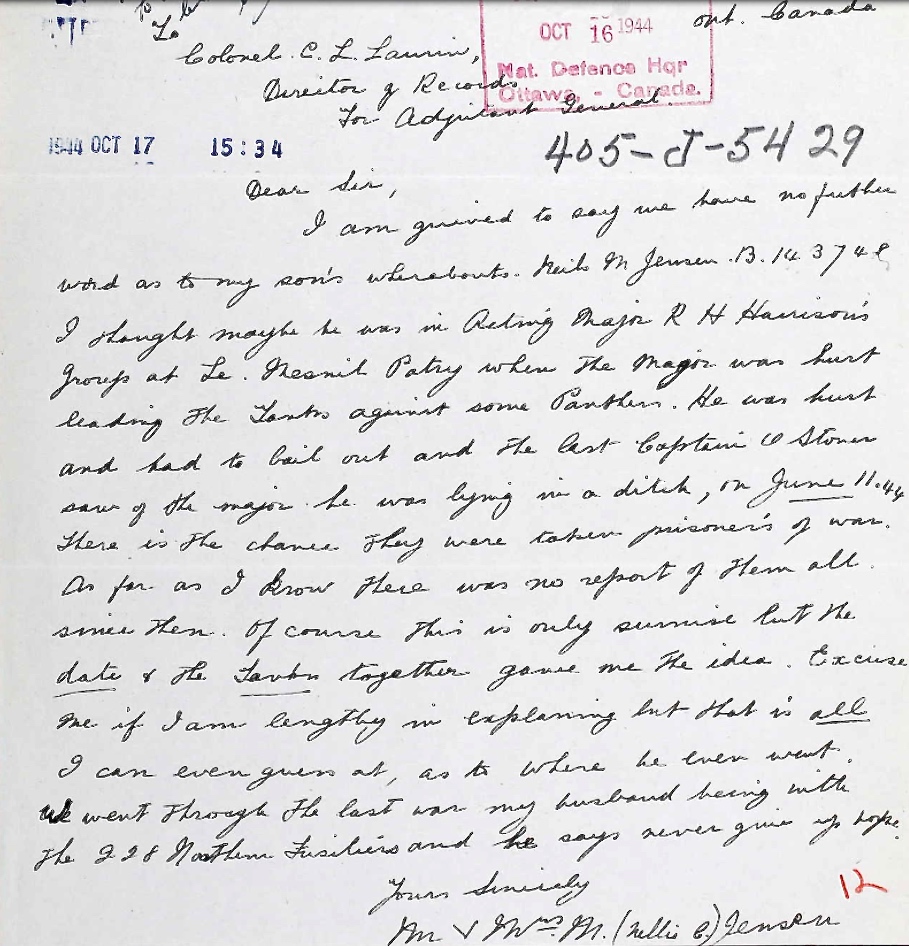 To
Ont. Canada
OCT 16 1944
Nat. Defence Hqr
Ottawa, - Canada.
Colonel C. L. Laurin,
Director of Records
For Adjutant General.
1944 OCT 17 15:34
405-J-5429
Dear Sir,
I am grieved to say we have no futher
word as to my son's whereabouts. Neils M Jensen. B.143748
I thought maybe he was in Acting Major R H Harrison's
Group at Le. Mesnil Patry when the Major was hurt
leading the Tanks against some Panthers. He was hurt
and had to bail out and the last Captain Stoner
saw of the major he was lying in a ditch, on June 11.44
There is the chance they were taken prisoner's of war.
As far as I know there was no report of them all
since then. Of course this is only surmise but the
date & the Tanks together gave me the idea. Excuse
me if I am lengthy in explaning but that is all
I can even guess at, as to where he even went.
we went through the last war my husband being with
the 228 Northern Fusiliers and he says never give up hope.
Yours Sincerely
Mr & Mrs. M. (Nellie C.) Jensen
12